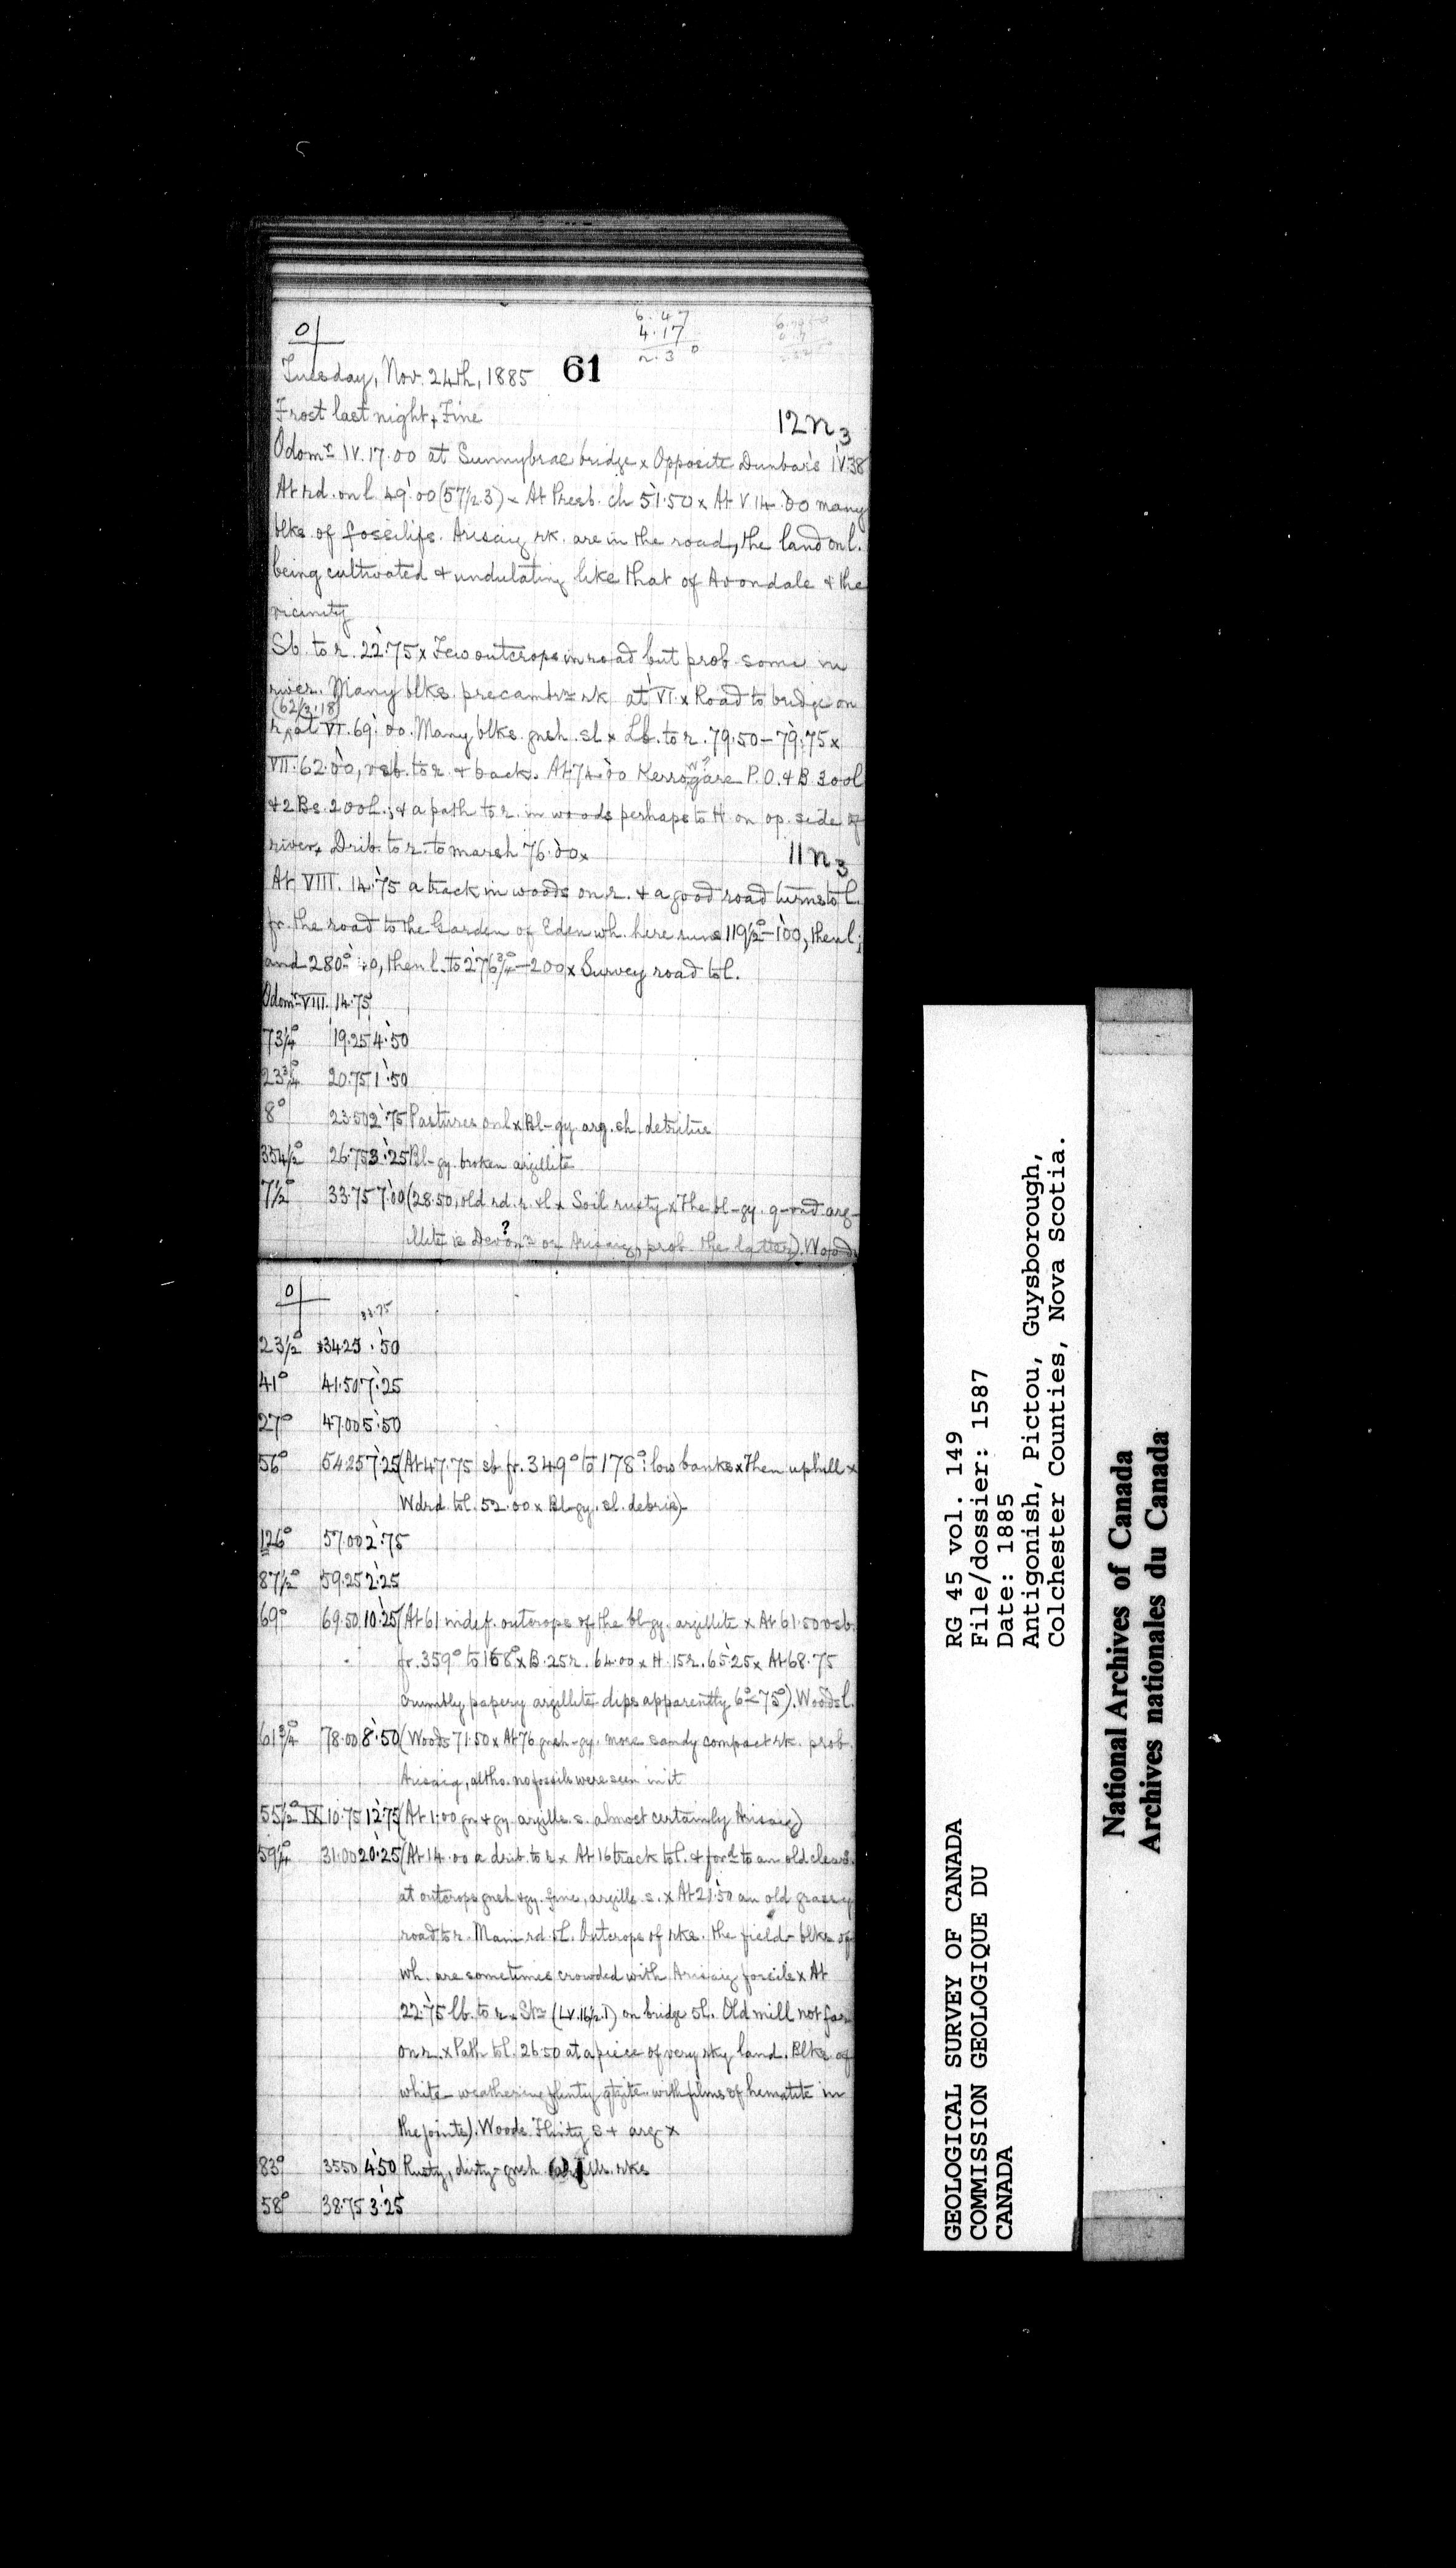 6.47
4.17
2.30
0|
Tuesday, Nov. 24th, 1885 61
Frost last night + Fine
12n3
Odomr IV.17.00 at Sunnybrae bridge x Opposite Dunbar's IV.38
At rd. on l. 49.00 (57½.3) x At Presb. ch 51.50 x At V 14.00 many
blks. of fossilifs. Arisaig rk. are in the road, the land on l.
being cultivated & undulating like that of Avondale & the
vicinity
Sb. to r. 22.75 x Few outcrops in road but prob. some in
river. Many blks. precambrn rk at VI. x Road to bridge on
(62/3.18)
r. at VI. 69.00. Many blks. gnsh. sl x Lb. to r. 79.50-79.75 x
VII. 62.00, vsb. to r. & back. At 74.00 Kerrogare P.O. & B 300l
w?
& 2 Bs. 200l.; & a path to r. in woods perhaps to H on op. side of
river x Drib. to r. to marsh 76.00 x
11n3
At VIII. 14.75 a track in woods on r. & a good road turns to l.
fr. the road to the Garden of Eden wh. here runs 119½°-100, then l;
and 280° , then l. to 276¾°-200 x Survey road to l.
Odomr VIII. 14.75
73¼° 19.25 4.50
23¾° 20.75 1.50
8° 23.50 2.75 Pastures on l x Bl-gy. arg. sh. detritus
354½° 26.75 3.25 Bl-gy. broken argillite
7½° 33.75 7.00 (28.50, old rd. r. & l x Soil rusty x The bl-gy. arg-
?
illite is Devonn or Arisaig, prob. the latter). Woods
0|
33.75
23½° 34.25 .50
41° 41.50 7.25
27° 47.00 5.50
56° 54.25 7.25 (At 47.75 sb fr. 349° to 178°: low banks x Then uphill x
Wdrd. to l. 52.00 x Bl-gy. sl. debris)
126° 57.00 2.75
87½° 59.25 2.25
69° 69.50 10.25 (At 61 indef. outcrops of the bl-gy. argillite x At 61.50 vsb.
fr. 359° to 168° x B. 25r. 64.00 x H. 15r. 65.25 x At 68.75
Crumbly, papery argillite dips apparently 6°<75°). Woods l.
61¾° 78.00 8.50 (Woods 71.50 x At 76 gnsh-gy. more sandy compact rk. prob.
Arisaig, altho. no fossils were seen in it
55½° IX 10.75 12.75 (At 1.00 gn & gy. argills. s. almost certainly Arisaig)
59¼° 31.00 20.25 (At 14.00 a drib. to r. x At 16 track to l. & ford to an old clears.
at outcrops gnsh & gy. fine, argills. s. x At 21.50 an old grassy
road to r. Main rd. sl. Outcrops of rks. the field - blks of
wh. are sometimes crowded with Arisaig fossils x At
22.75 lb. to r. x Stn (LV.16½.1) on bridge sl. Old mill not far
on r. x Path to l. 26.50 at a piece of very rky land. Blks. of
white-weathering flinty qtzite. with films of hematite in
the joints). Woods. Flinty s + arg x
83° 35.50 4.50 Rusty, dirty-gnsh argills. rks
58° 38.75 3.25
GEOLOGICAL SURVEY OF CANADA
COMMISSION GEOLOGIQUE DU
CANADA
RG 45 vol. 149
File/dossier: 1587
Date: 1885
Antigonish, Pictou, Guysborough,
Colchester Counties, Nova Scotia.
National Archives of Canada
Archives nationales du Canada